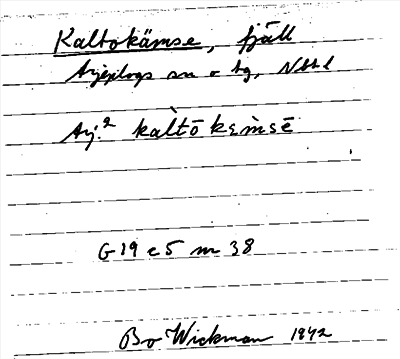 Kaltokämse, fjäll
Arjeplogs sn o tg, Nbtl
Arj.² kàltō kɛm̀sē
G 19 c 5 m 38
Bo Wickman 1942